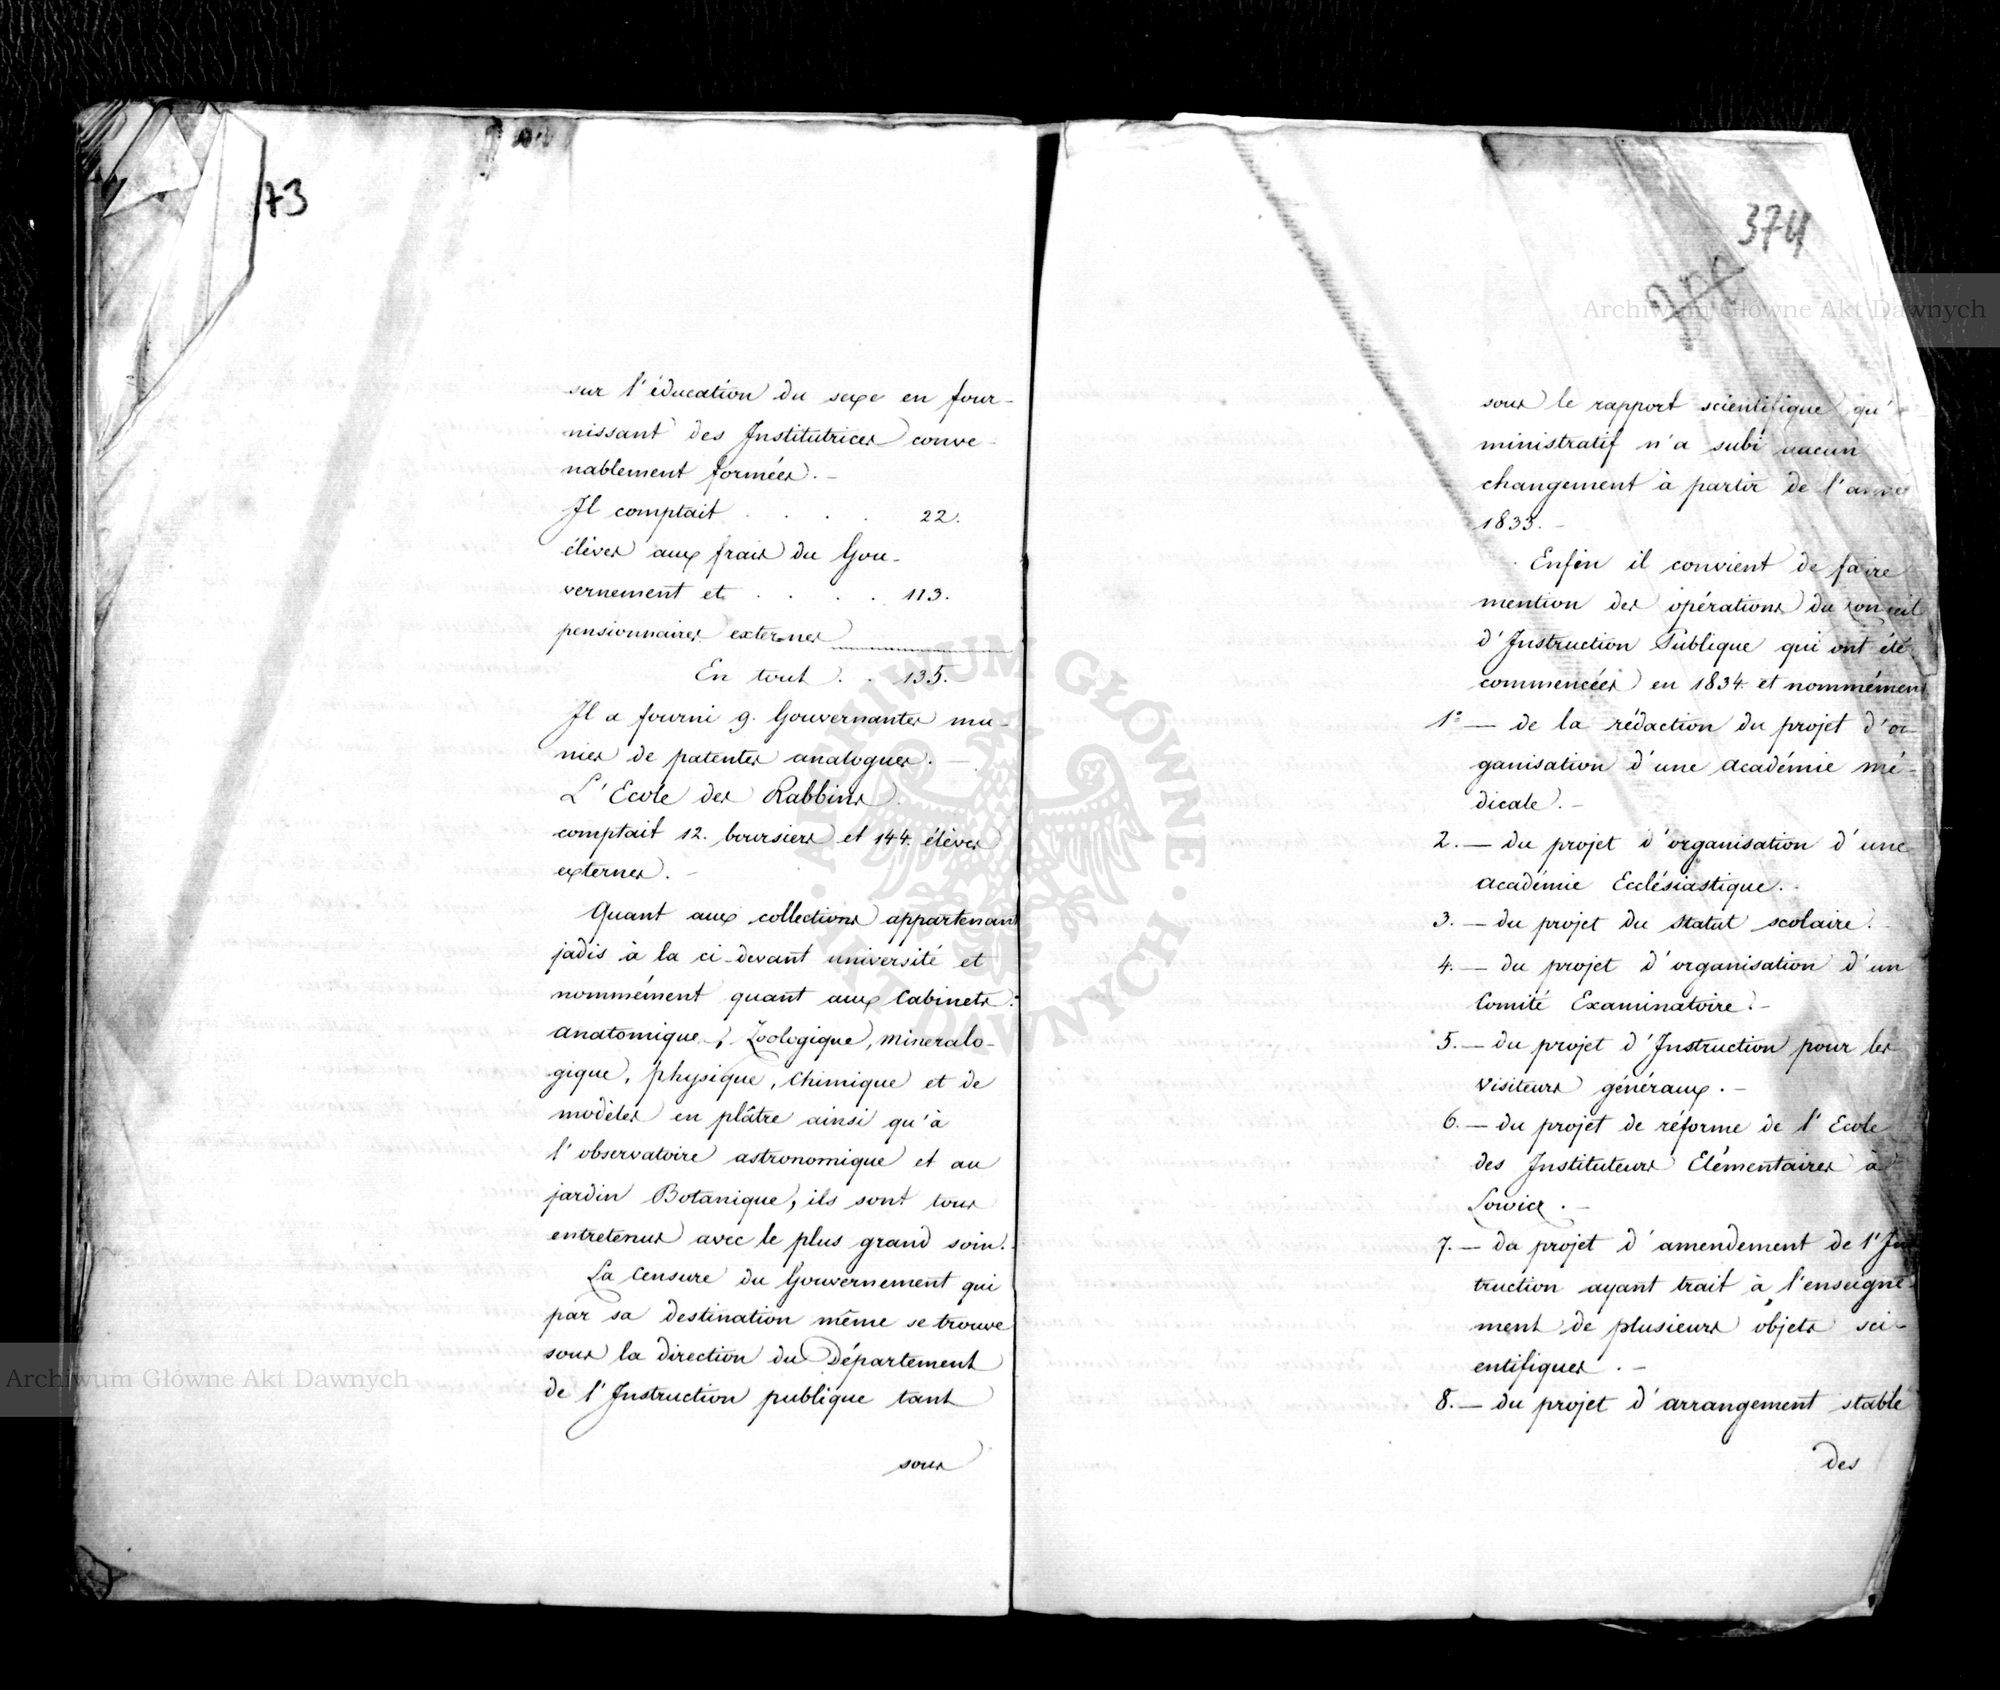 73
sur l'éducation du sexe en four-
nissant des Institutrices conve-
nablement formées. -
Il comptait . . . . 22.
élèves aux frais du Gou-
vernement et . . . . 113.
pensionnaires externes
En tout . . 135.
Il a fourni 9. Gouvernantes mu-
nies de patentes analogues. -
L'Ecole des Rabbins
comptait 12. boursiers et 144. élèves
externes. -
Quant aux collections appartenant
jadis à la ci-devant université et
nommément quant aux Cabinets:
anatomique, Zoologique, mineralo-
gique, physique, Chimique et de
modèles en plâtre ainsi qu'à
l'observatoire astronomique et au
jardin Botanique, ils sont tous
entretenus avec le plus grand soin.
La Censure du Gouvernement qui
par sa destination même se trouve
sous la direction du Département
de l'Instruction publique tant
sous
374
sous le rapport scientifique qu'
ministratif n'a subi aucun
changement à partir de l'année
1833. -
Enfin il convient de faire
mention des opérations du Conseil
d'Instruction Publique qui ont été
commencées en 1834. et nommément
1° — de la rédaction du projet d'or-
ganisation d'une académie mé-
dicale. -
2. — du projet d'organisation d'une
académie Ecclésiastique. -
3. — du projet du statut scolaire.
4. — du projet d'organisation d'un
Comité Examinatoire. -
5. — du projet d'Instruction pour les
visiteurs généraux. -
6. — du projet de réforme de l'Ecole
des Instituteurs Elémentaires à
Lowicz. -
7. — da projet d'amendement de l'Ins
truction ayant trait à l'enseigne-
ment de plusieurs objets sci-
entifiques. -
8. — du projet d'arrangement stable
des
Archiwum Główne Akt Dawnych
Archiwum Główne Akt Dawnych
ARCHIWUM GŁÓWNE AKT DAWNYCH